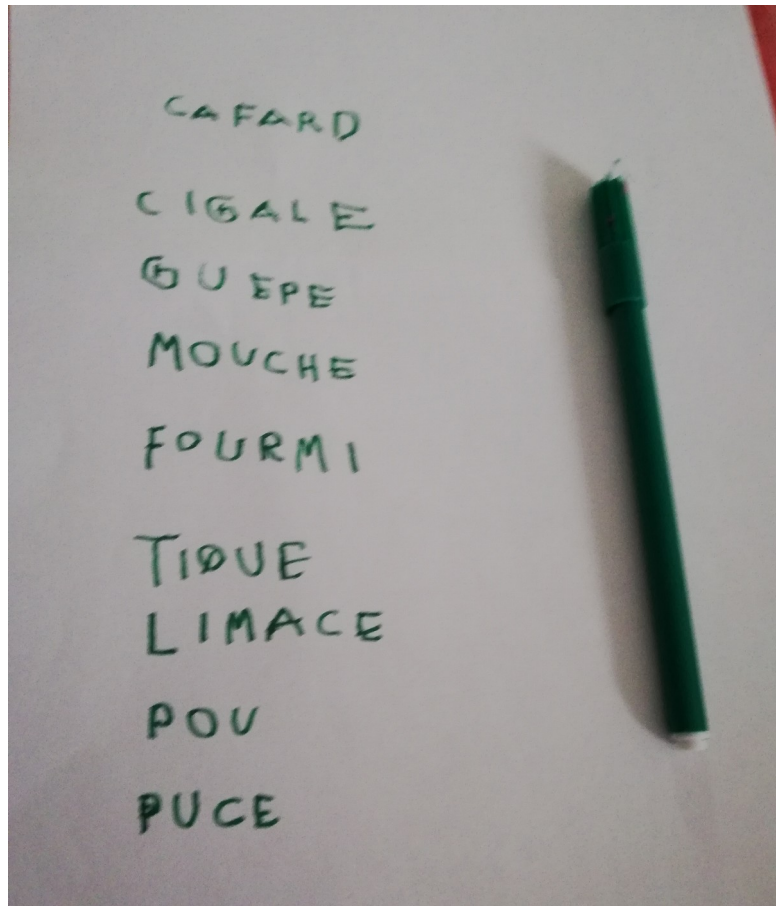 CAFARD
CIGALE
GUEPE
MOUCHE
FOURMI
TIQUE
LIMACE
POU
PUCE